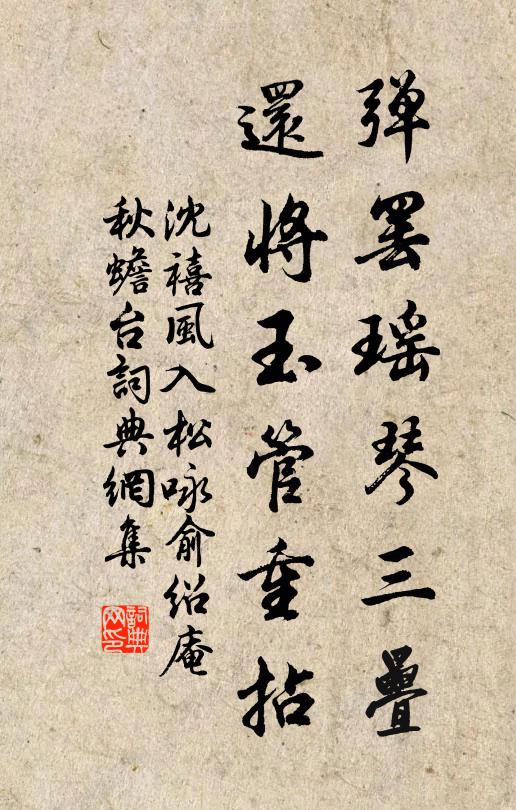 弹罢瑶琴三疊
還將玉管重拈
沈禧風入松咏俞绍庵
秋蟾台詞典網集
詞典网印